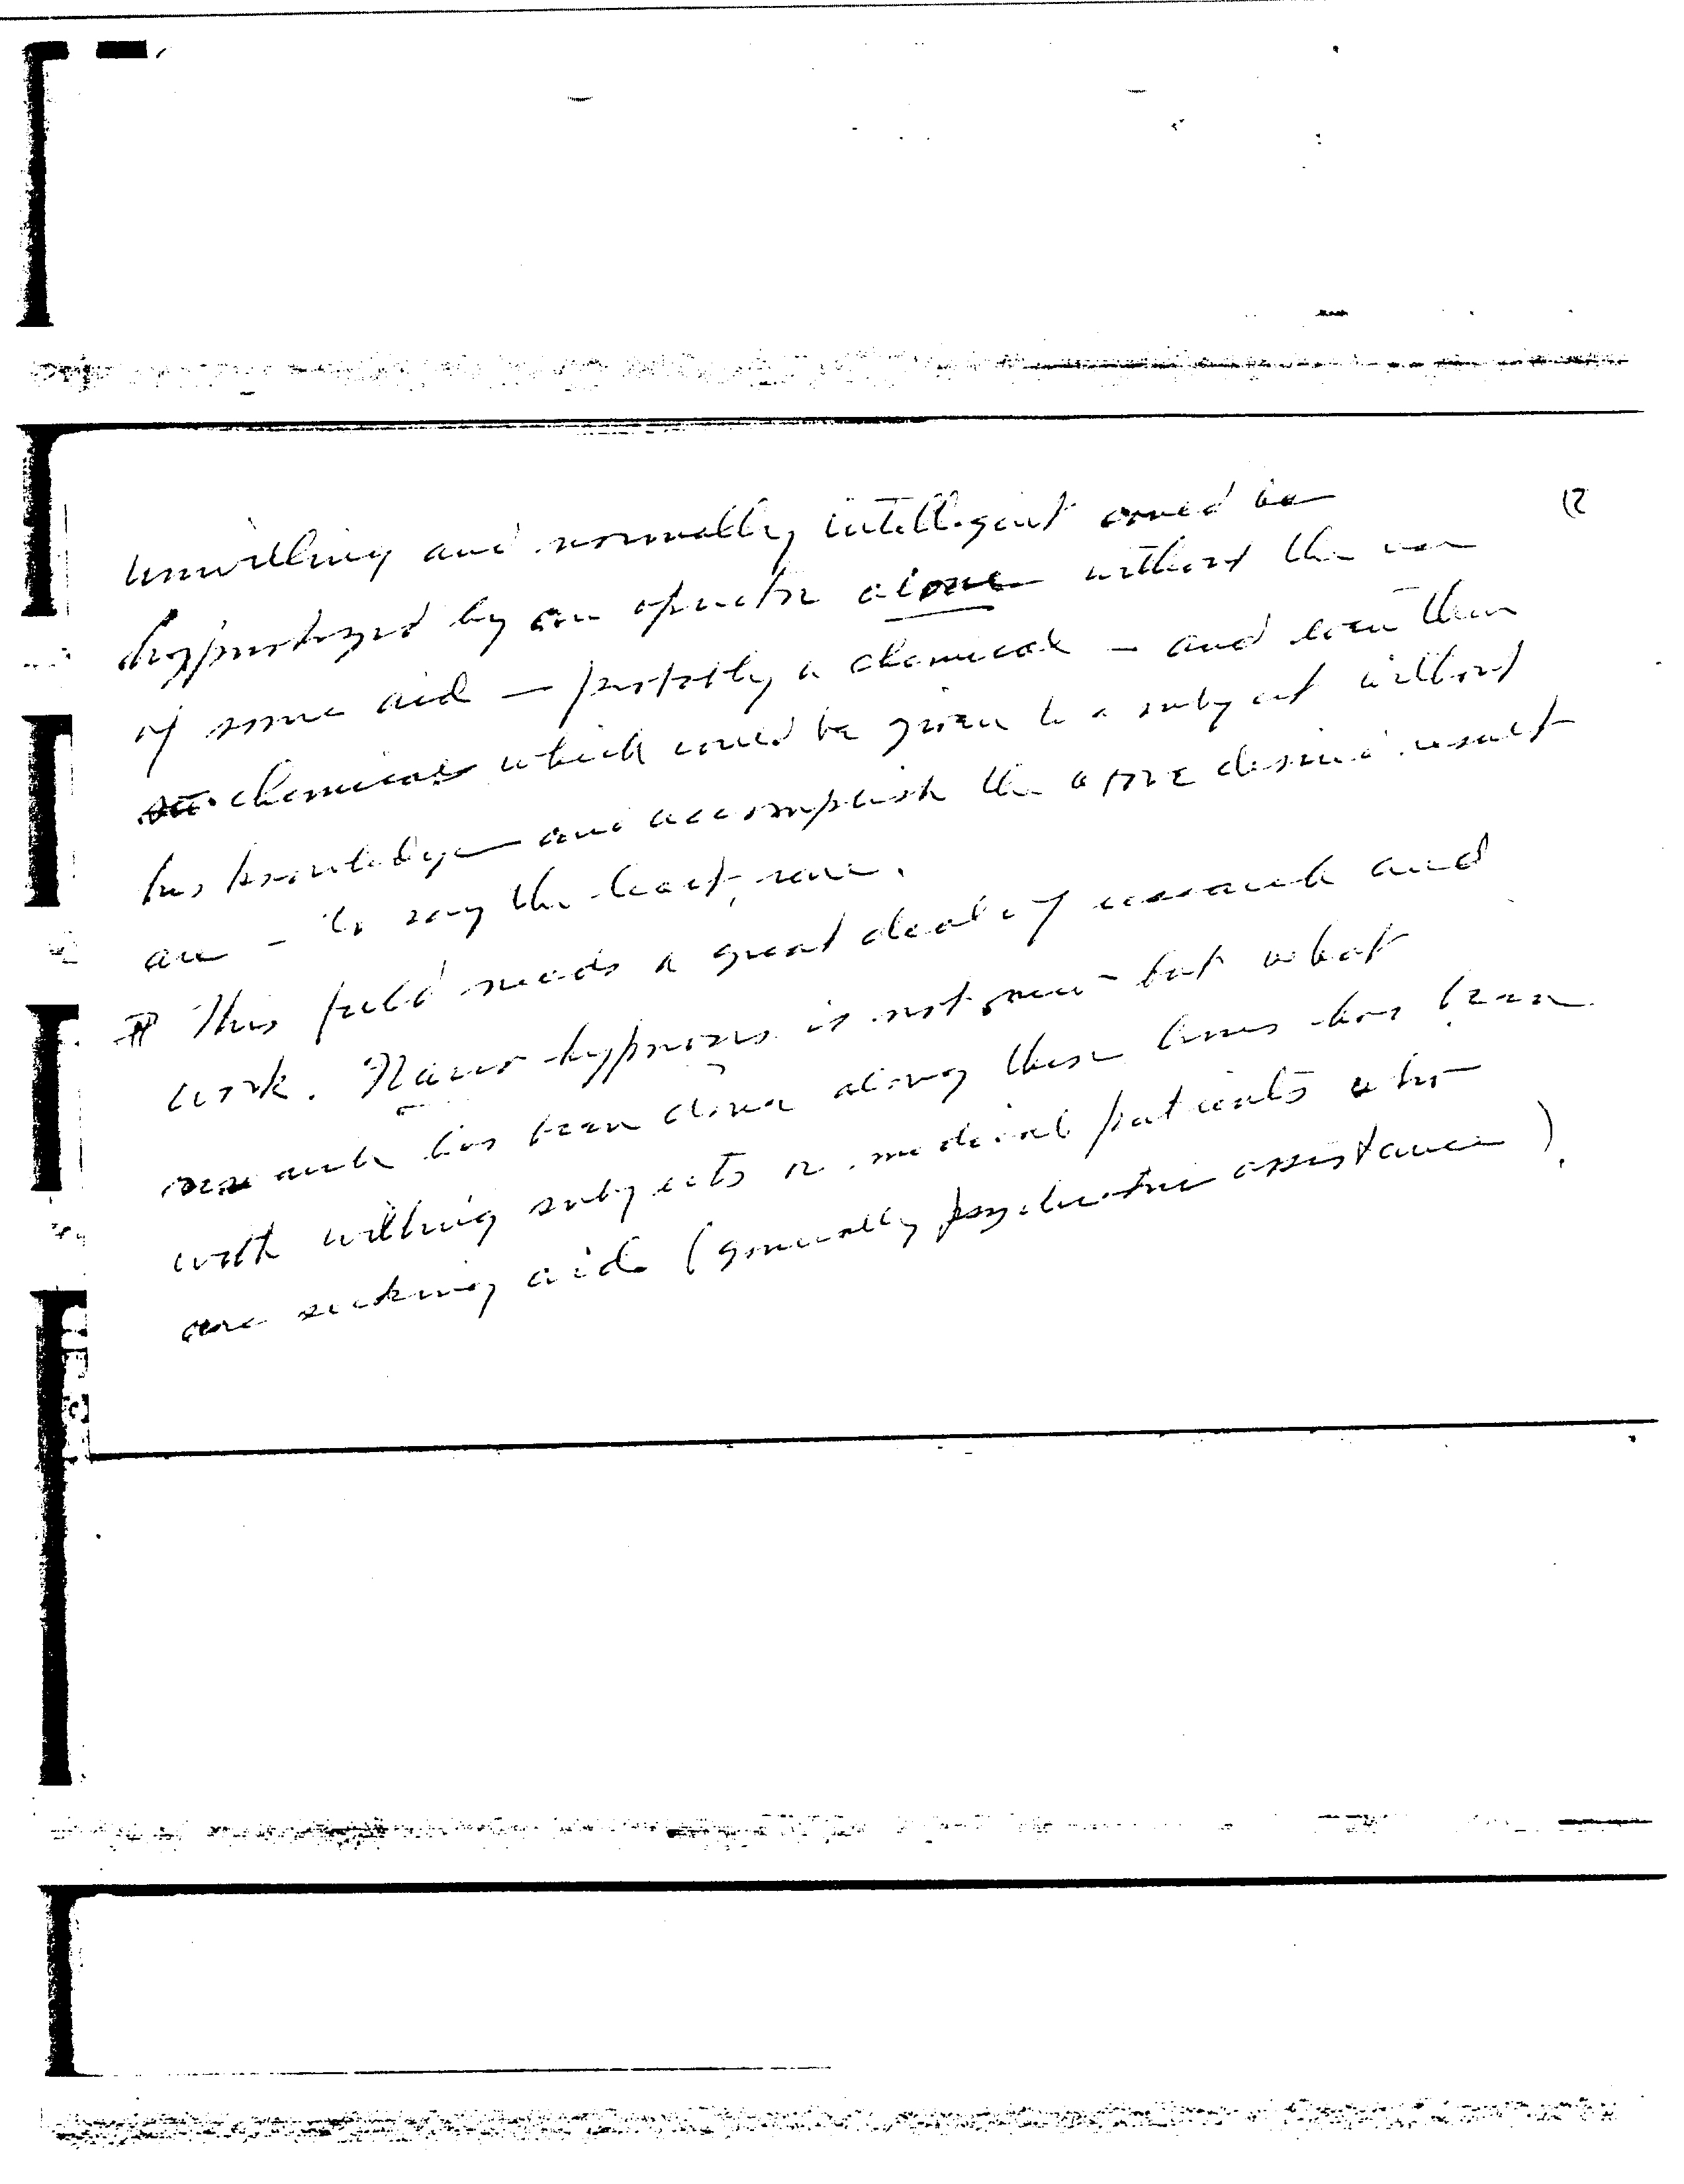 12
unwilling and normally intelligent could be
hypnotized by an operator alone without the use
of some aid — probably a chemical — and even then
chemicals which could be given to a subject without
his knowledge and accomplish the above desired result
are - to say the least, rare.
This field needs a great deal of research and
work. Narco-hypnosis is not new - but what
research has been done along these lines has been
with willing subjects or medical patients who
are seeking aid (generally psychiatric assistance).